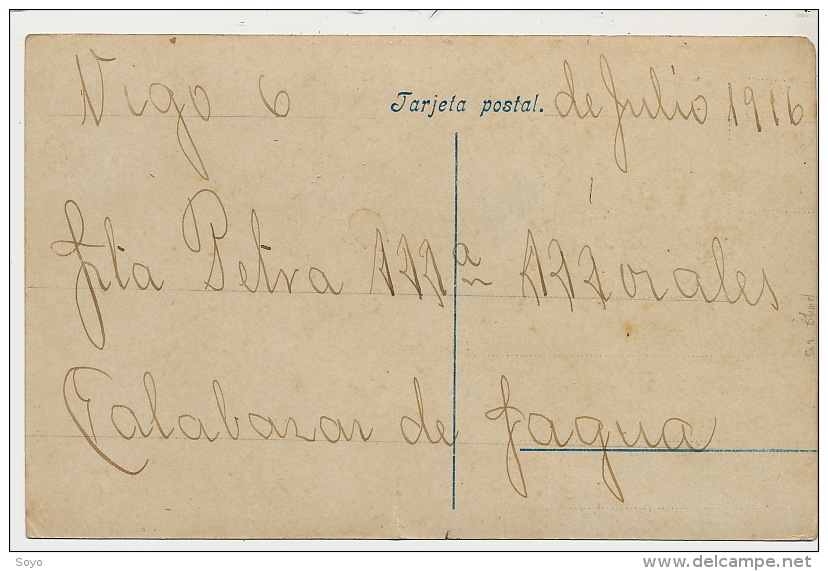 Vigo 6 de Julio 1916
Tarjeta postal.
Srta Petra Mª Morales
Calabazar de Sagua
Soyo
www.delcampe.net